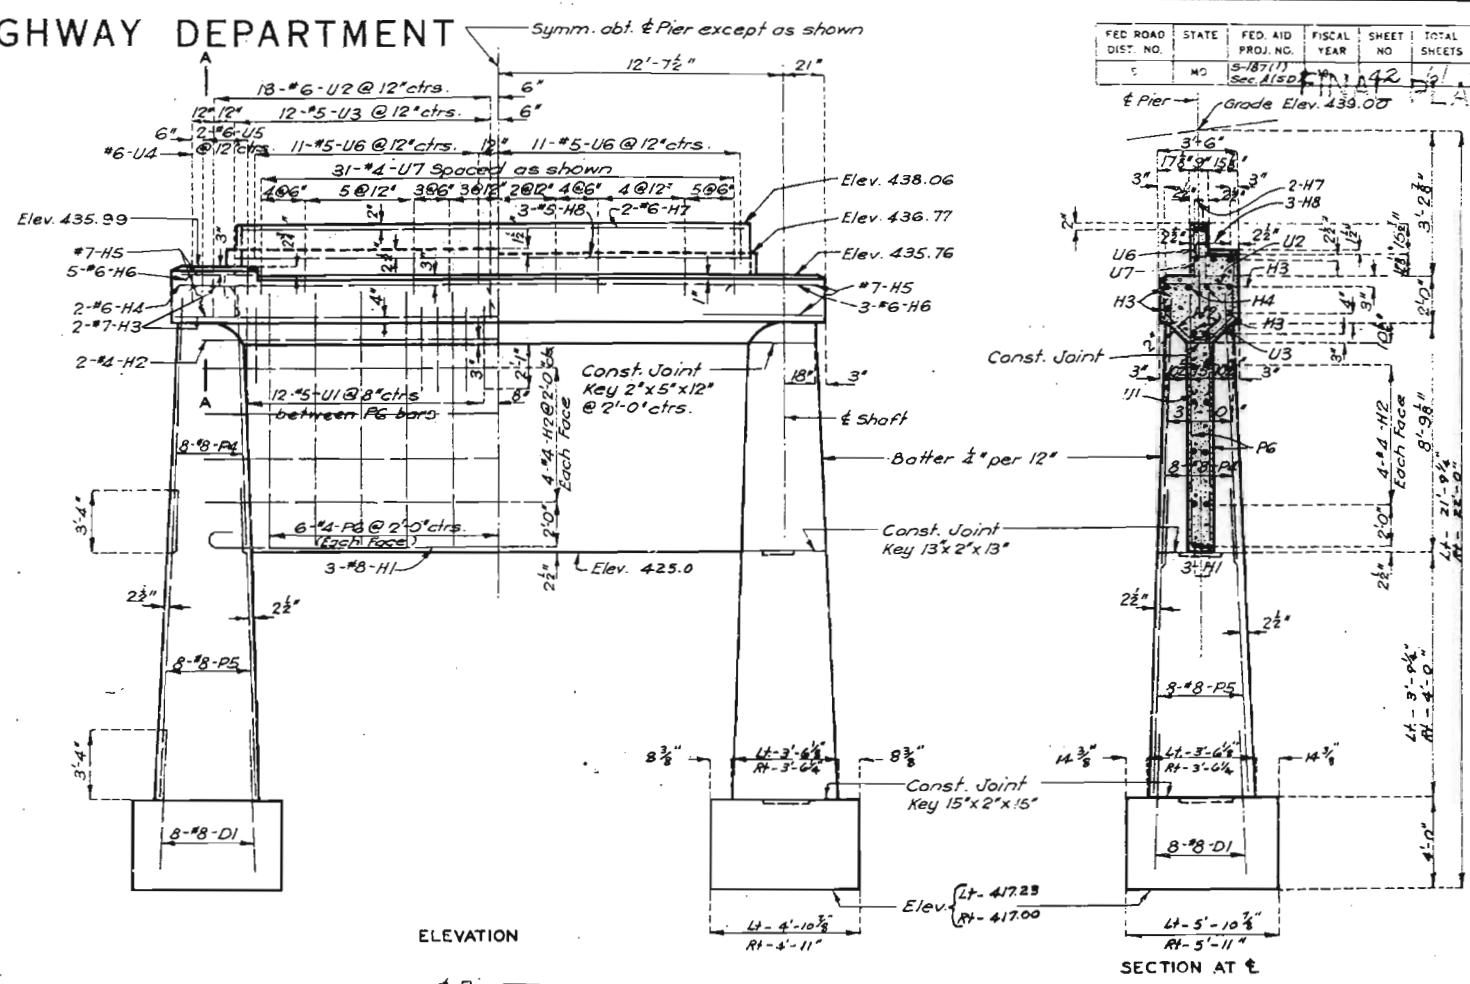 GHWAY DEPARTMENT
Symm. abt. ℄ Pier except as shown
FED. ROAD DIST. NO.
STATE
FED. AID PROJ. NO.
FISCAL YEAR
SHEET NO
TOTAL SHEETS
5
MO
S-187(1)
Sec. A(5D)
42
A
12'-7½"
21"
A
18-#6-U2 @ 12" ctrs.
6"
12" 12"
12-#5-U3 @ 12" ctrs.
6"
6"
2-#6-U5
@ 12" ctrs.
#6-U4
11-#5-U6 @ 12" ctrs.
12"
11-#5-U6 @ 12" ctrs.
31-#4-U7 Spaced as shown
4@6"
5@12"
3@6"
3@12"
2@12"
4@6"
4@12"
5@6"
3-#5-H8
2-#6-H7
Elev. 438.06
Elev. 436.77
Elev. 435.76
Elev. 435.99
2"
3"
2½"
2½"
1½"
3"
#7-H5
5-#6-H6
2-#6-H4
2-#7-H3
2-#4-H2
4"
1"
#7-H5
3-#6-H6
3"
2'-1"
8"
Const. Joint
Key 2"x5"x12"
@ 2'-0" ctrs.
18"
3"
A
12-#5-U1 @ 8" ctrs
between P6 bars
4-#4-H2 @ 2'-0" cts
Each Face
℄ Shaft
8-#8-P4
Batter ¼" per 12"
3'-4"
6-#4-P6 @ 2'-0" ctrs.
(Each Face)
2'-0"
Const. Joint
Key 13"x2"x13"
3-#8-H1
Elev. 425.0
2½"
2½"
2½"
8-#8-P5
3'-4"
8⅜"
Lt-3'-6⅛"
Rt-3'-6¼"
8⅜"
Const. Joint
Key 15"x2"x15"
8-#8-D1
Elev.
Lt-417.23
Rt-417.00
Lt-4'-10⅞"
Rt-4'-11"
ELEVATION
℄ Pier
Grade Elev. 439.00
3'-6"
17½"
9"
15½"
3"
3"
2½"
2½"
2-H7
3-H8
2"
2½"
2½"
2½"
1½"
15½"
3'-2⅞"
U6
U2
U7
H3
H3
H4
H3
4"
3"
2'-0"
10½"
Const. Joint
U3
3"
3"
3"
U1
P6
8-#8-P4
4-#4-H2
Each Face
8'-9⅛"
Lt-21'-9¼"
Rt-22'-0"
2'-0"
3-H1
2½"
2½"
2½"
8-#8-P5
Lt-3'-9¼"
Rt-4'-0"
14⅜"
Lt-3'-6⅛"
Rt-3'-6¼
14⅜"
8-#8-D1
4'-0"
Lt-5'-10⅞"
Rt-5'-11"
SECTION AT ℄